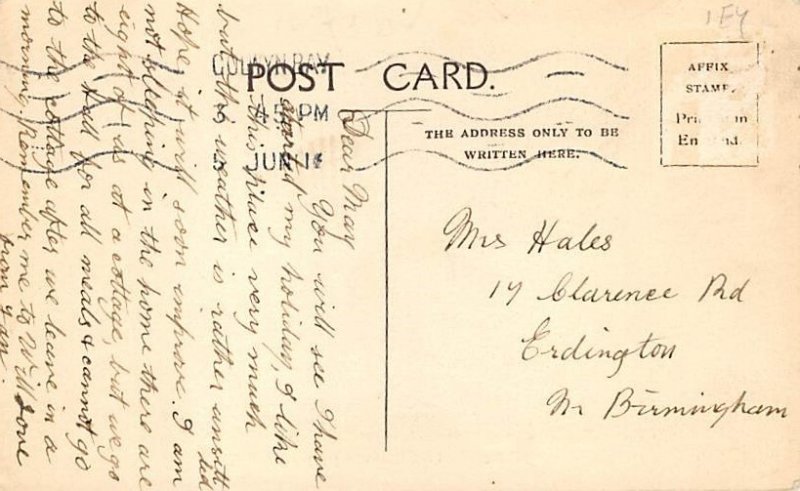 1EY
POST CARD.
THE ADDRESS ONLY TO BE
WRITTEN HERE.
AFFIX
STAMP.
Printed in
England.
COLWYN BAY
45 PM
5 JUN 14
Dear May
You will see I have
started my holiday, I like
this place very much
but this weather is rather unsett
led
Hope it will soon improve. I am
not sleeping in the home there are
eight of us at a cottage, but we go
to the Hall for all meals & cannot go
to the cottage after we leave in a
morning. Remember me to Will Love
from
Mrs Hales
17 Clarence Rd
Erdington
Nr Birmingham